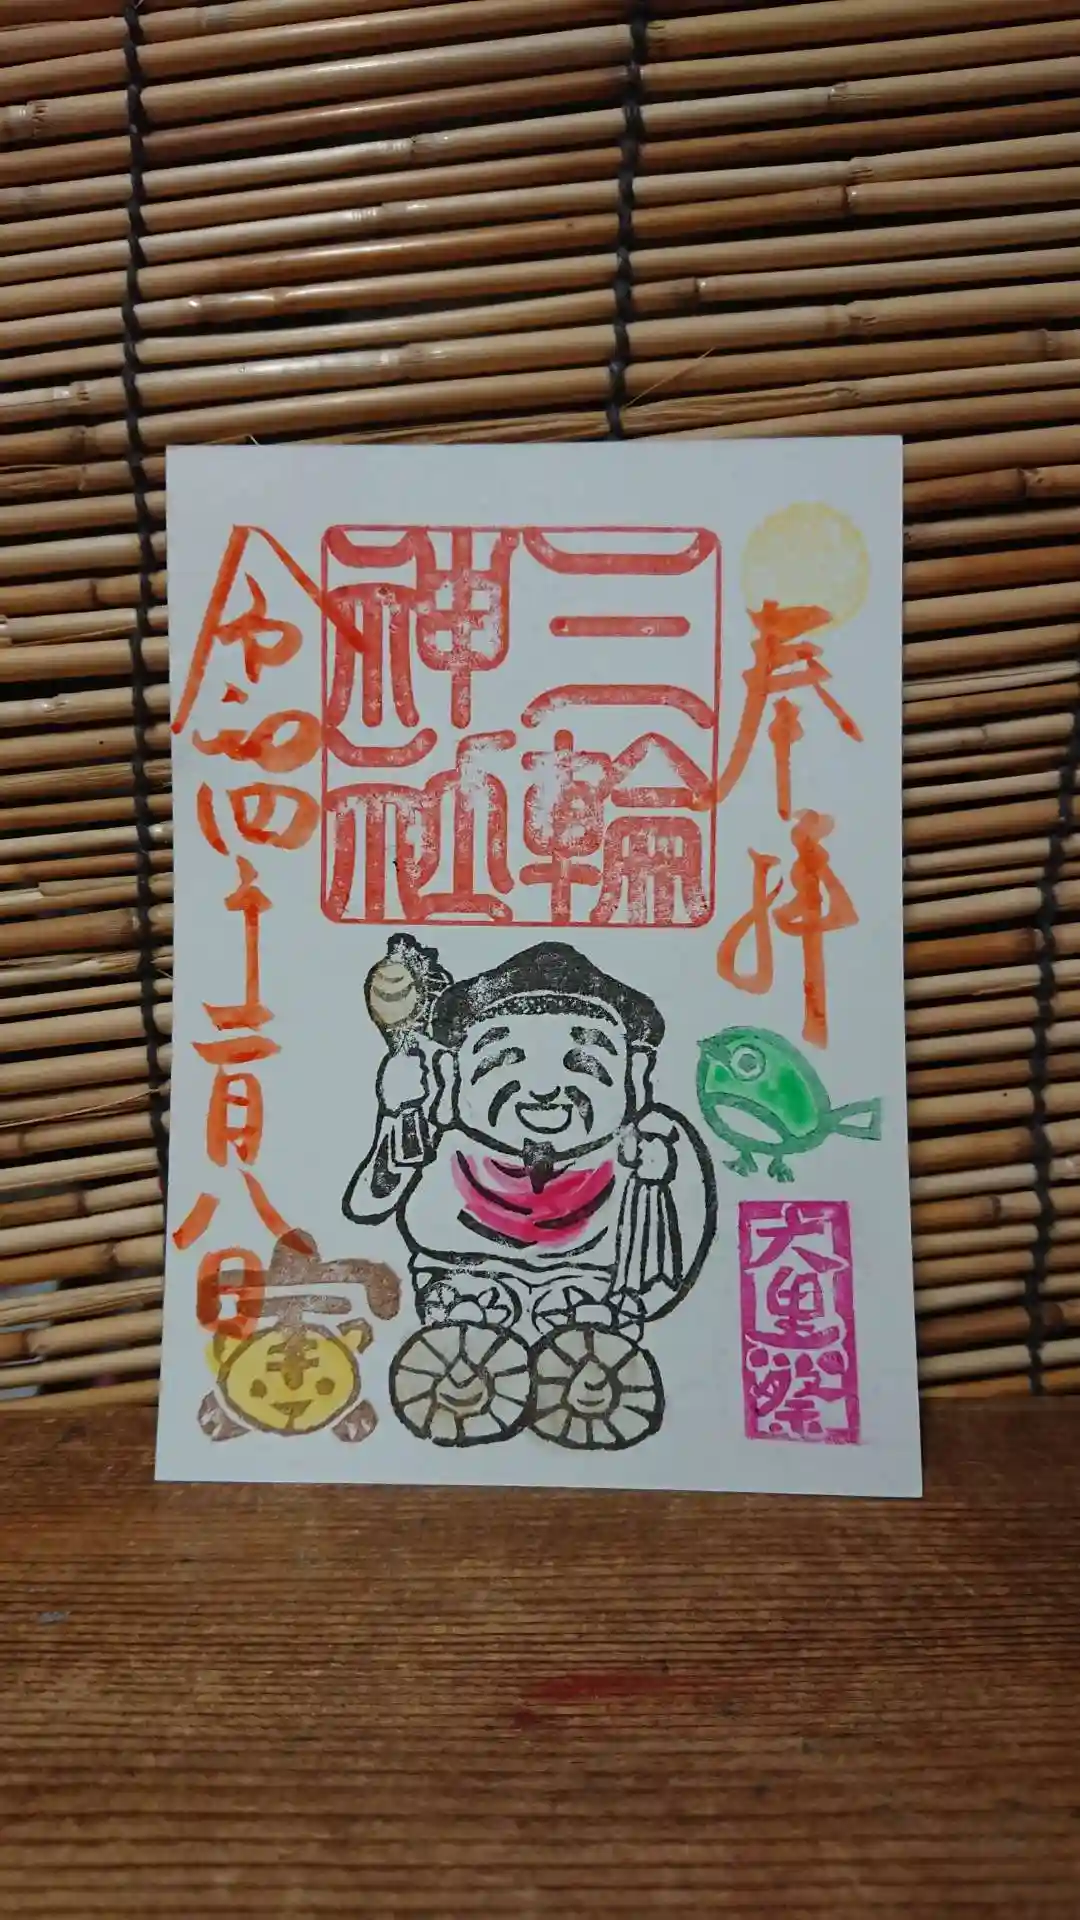 奉拝
三輪神社
大黒祭
令和四年二月八日
寅